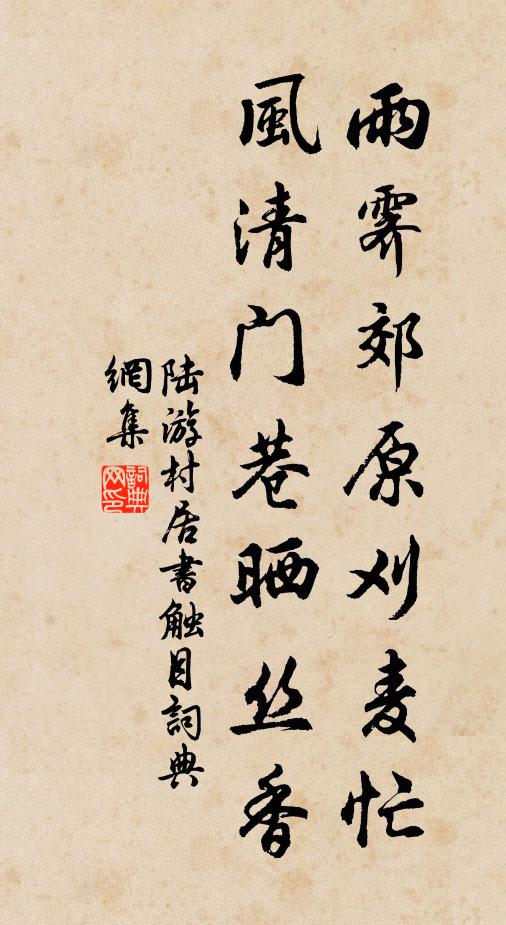 雨霁郊原刈麦忙
風清门巷晒丝香
陆游村居書触目詞典
網集
詞典
网印